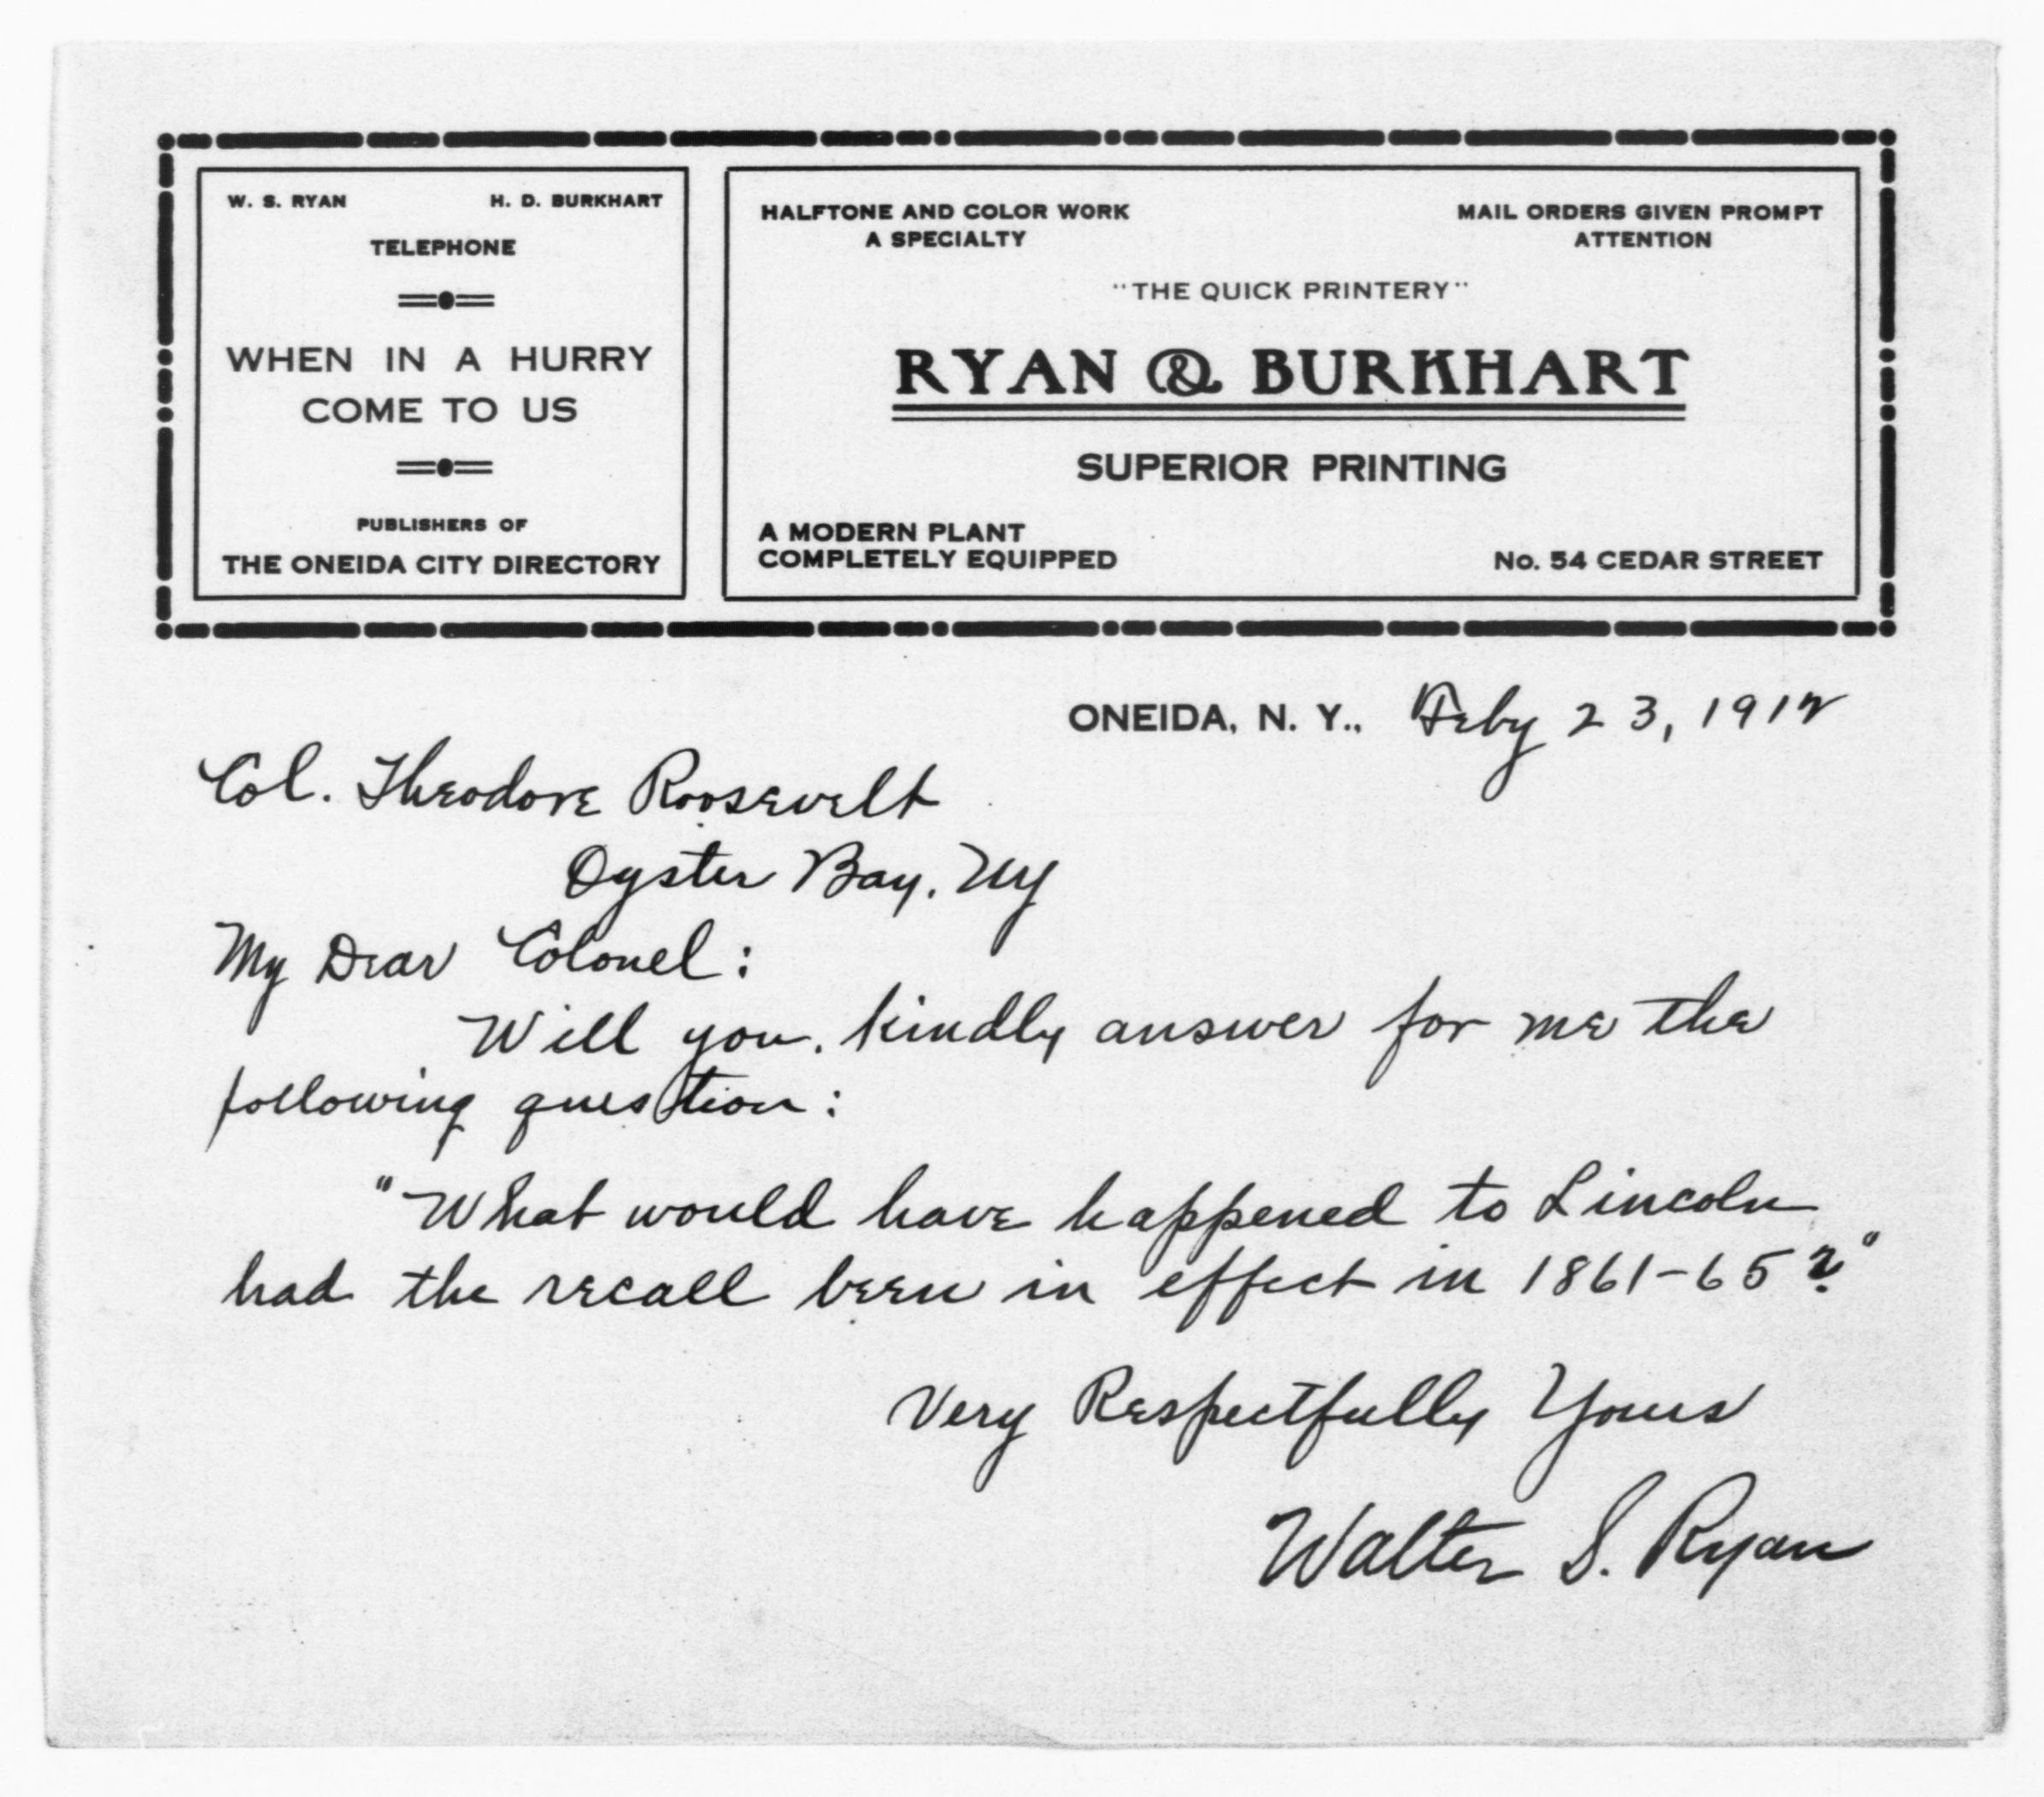 W. S. RYAN H. D. BURKHART
TELEPHONE
WHEN IN A HURRY
COME TO US
PUBLISHERS OF
THE ONEIDA CITY DIRECTORY
HALFTONE AND COLOR WORK
A SPECIALTY
MAIL ORDERS GIVEN PROMPT
ATTENTION
"THE QUICK PRINTERY"
RYAN & BURKHART
SUPERIOR PRINTING
A MODERN PLANT
COMPLETELY EQUIPPED
No. 54 CEDAR STREET
ONEIDA, N. Y., Feby 23, 1912
Col. Theodore Roosevelt
Oyster Bay, NY
My Dear Colonel:
Will you. kindly answer for me the
following question:
"What would have happened to Lincoln
had the recall been in effect in 1861-65?"
Very Respectfully Yours
Walter S. Ryan